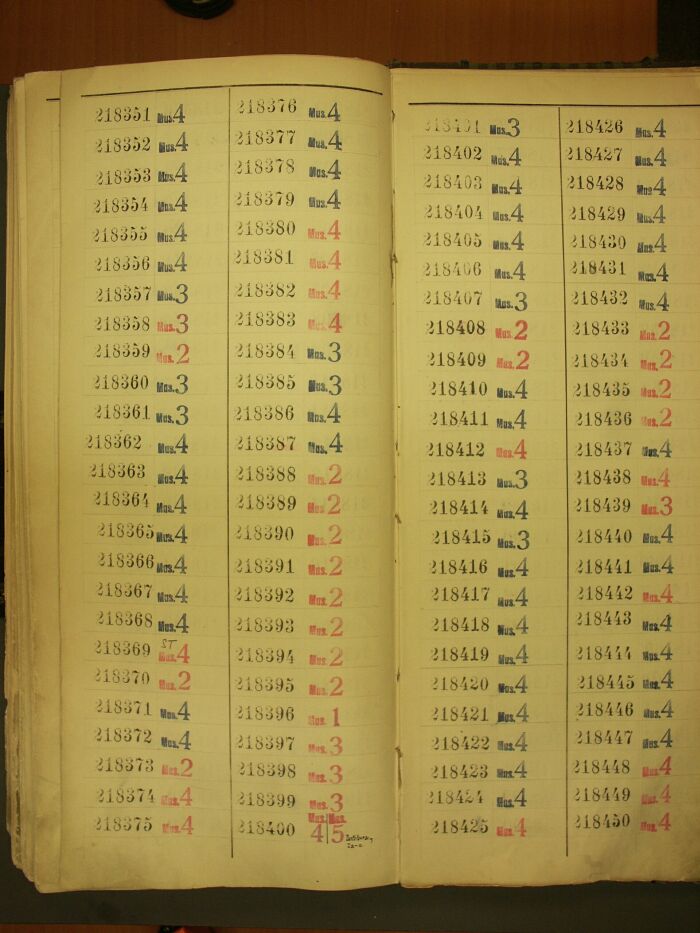 218351 Mus.4
218352 Mus.4
218353 Mus.4
218354 Mus.4
218355 Mus.4
218356 Mus.4
218357 Mus.3
218358 Mus.3
218359 Mus.2
218360 Mus.3
218361 Mus.3
218362 Mus.4
218363 Mus.4
218364 Mus.4
218365 Mus.4
218366 Mus.4
218367 Mus.4
218368 Mus.4
ST
218369 Mus.4
218370 Mus.2
218371 Mus.4
218372 Mus.4
218373 Mus.2
218374 Mus.4
218375 Mus.4
218376 Mus.4
218377 Mus.4
218378 Mus.4
218379 Mus.4
218380 Mus.4
218381 Mus.4
218382 Mus.4
218383 Mus.4
218384 Mus.3
218385 Mus.3
218386 Mus.4
218387 Mus.4
218388 Mus.2
218389 Mus.2
218390 Mus.2
218391 Mus.2
218392 Mus.2
218393 Mus.2
218394 Mus.2
218395 Mus.2
218396 Mus.1
218397 Mus.3
218398 Mus.3
218399 Mus.3
218400 Mus.4 Mus.5
218401 Mus.3
218402 Mus.4
218403 Mus.4
218404 Mus.4
218405 Mus.4
218406 Mus.4
218407 Mus.3
218408 Mus.2
218409 Mus.2
218410 Mus.4
218411 Mus.4
218412 Mus.4
218413 Mus.3
218414 Mus.4
218415 Mus.3
218416 Mus.4
218417 Mus.4
218418 Mus.4
218419 Mus.4
218420 Mus.4
218421 Mus.4
218422 Mus.4
218423 Mus.4
218424 Mus.4
218425 Mus.4
218426 Mus.4
218427 Mus.4
218428 Mus.4
218429 Mus.4
218430 Mus.4
218431 Mus.4
218432 Mus.4
218433 Mus.2
218434 Mus.2
218435 Mus.2
218436 Mus.2
218437 Mus.4
218438 Mus.4
218439 Mus.3
218440 Mus.4
218441 Mus.4
218442 Mus.4
218443 Mus.4
218444 Mus.4
218445 Mus.4
218446 Mus.4
218447 Mus.4
218448 Mus.4
218449 Mus.4
218450 Mus.4